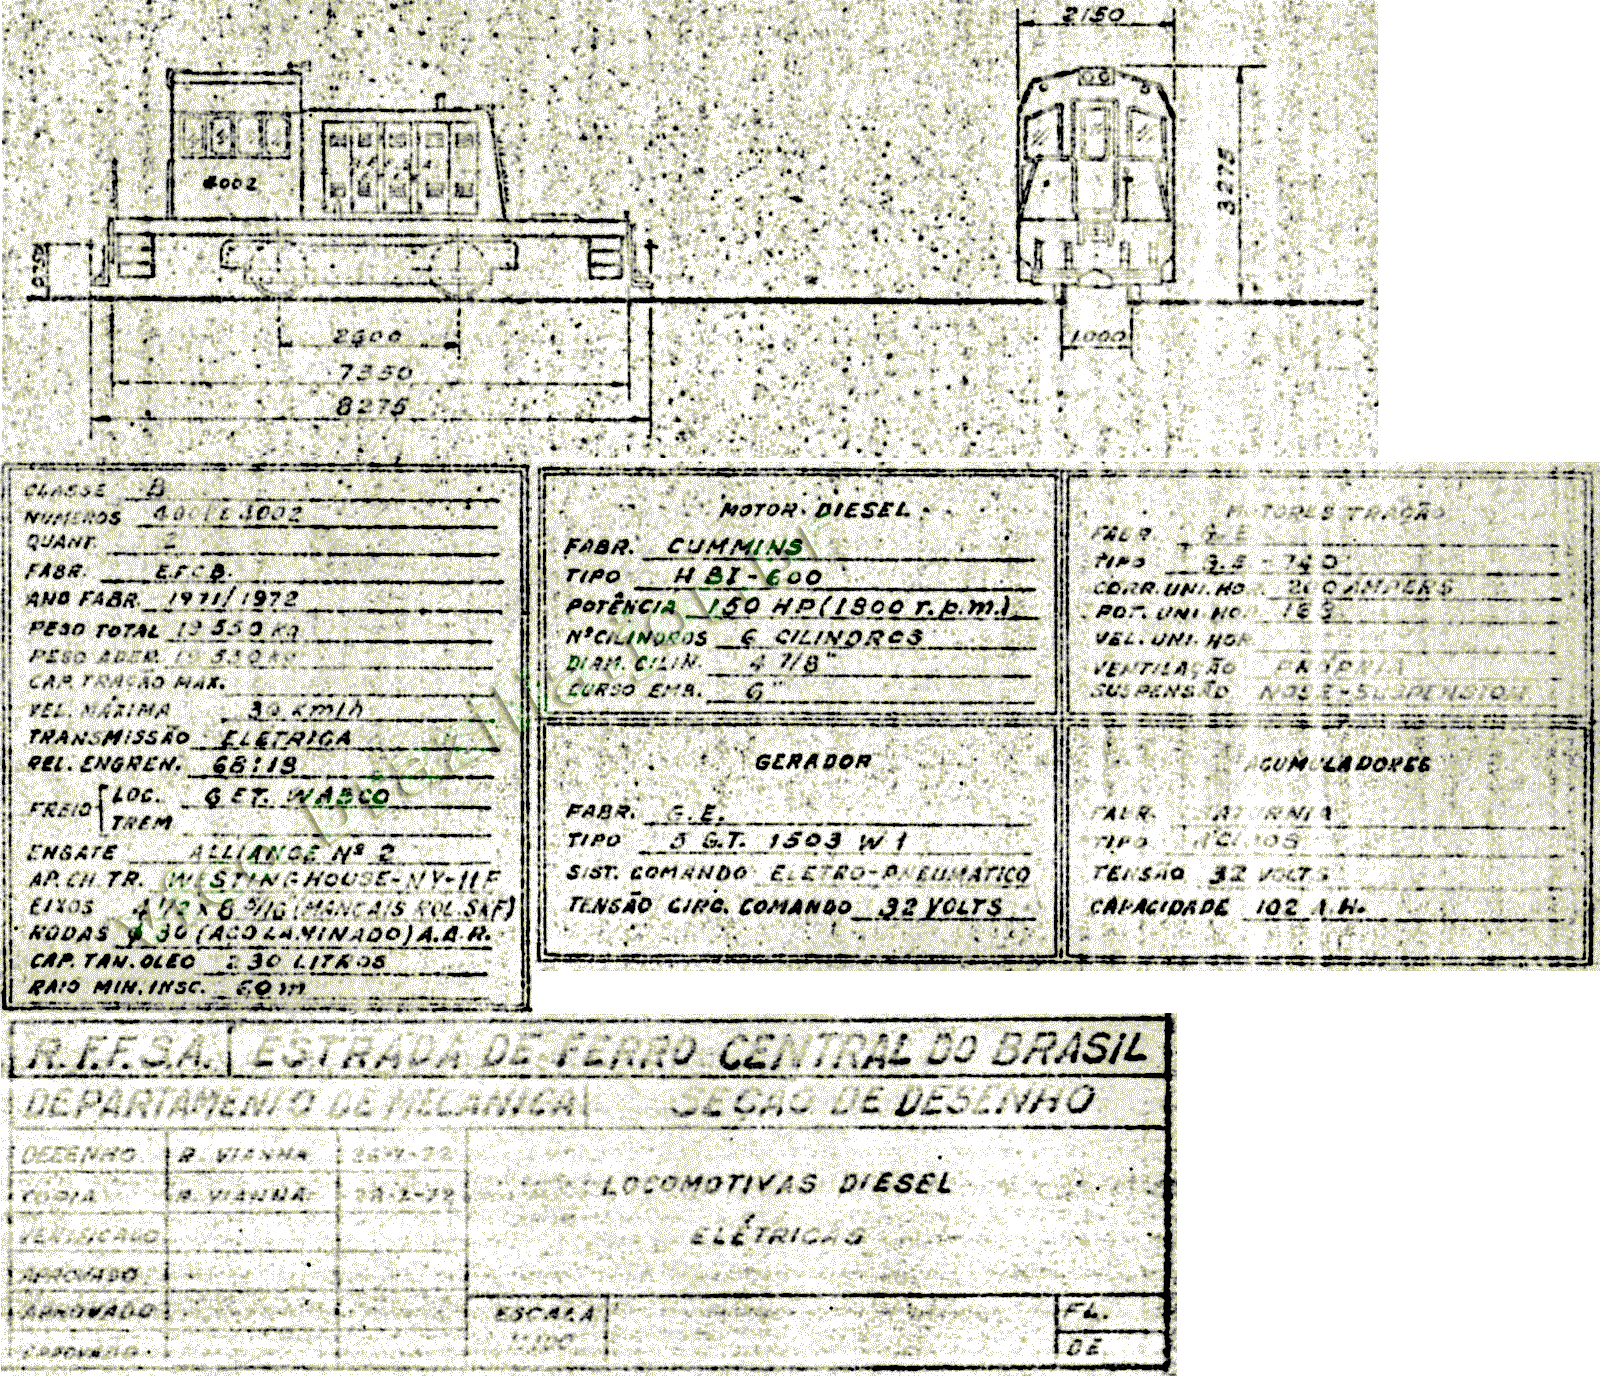 2150
3275
4002
2600
7350
8275
1000
CLASSE B
NUMEROS 4001 E 4002
QUANT. 2
FABR. E.F.C.B.
ANO FABR. 1971/1972
PESO TOTAL 19 550 Kg
PESO ADER. 19 550 Kg
CAP. TRAÇÃO MÁX.
VEL. MÁXIMA 30 Km/h
TRANSMISSÃO ELÉTRICA
REL. ENGREN. 68:19
FREIO LOC. 6 ET. WABCO
TREM
ENGATE ALLIANCE Nº 2
AP. CH. TR. WESTINGHOUSE-NY-11F
EIXOS (MANCAIS ROL. SKF)
RODAS ø 30 (AÇO LAMINADO) A.A.R.
CAP. TAN. OLEO 230 LITROS
RAIO MIN. INSC. 60 m
MOTOR DIESEL
FABR. CUMMINS
TIPO H BI-600
POTÊNCIA 150 HP (1800 r.p.m.)
Nº CILINDROS 6 CILINDROS
DIAM. CILIN. 4 7/8"
CURSO EMB. 6"
MOTORES TRAÇÃO
FABR. G.E.
TIPO G.E-740
CORR. UNI. HOR. AMPERS
POT. UNI. HOR.
VEL. UNI. HOR.
VENTILAÇÃO PRÓPRIA
SUSPENSÃO NOSE-SUSPENSION
GERADOR
FABR. G.E.
TIPO 5 G.T. 1503 W 1
SIST. COMANDO ELETRO-PNEUMÁTICO
TENSÃO CIRC. COMANDO 32 VOLTS
ACUMULADORES
FABR. SATURNIA
TIPO ACIDOS
TENSÃO 32 VOLTS
CAPACIDADE 102 A.H.
R.F.F.S.A. ESTRADA DE FERRO CENTRAL DO BRASIL
DEPARTAMENTO DE MECANICA SEÇÃO DE DESENHO
DESENHO R. VIANNA
COPIA R. VIANNA
VERIFICADO
APROVADO
APROVADO
APROVADO
LOCOMOTIVAS DIESEL
ELÉTRICAS
ESCALA
FL.
DE